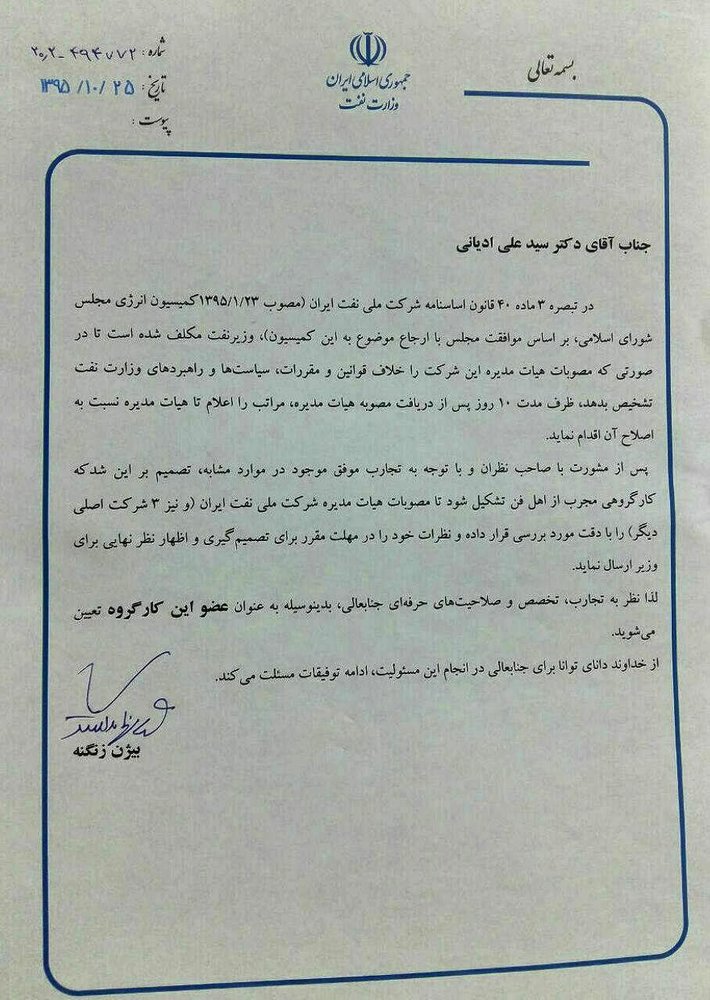 بسمه تعالی
جمهوری اسلامی ایران
وزارت نفت
شماره : ۲۰٫۲-۴۹۴۷۷۲
تاریخ : ۱۳۹۵/۱۰/۲۵
پیوست :
جناب آقای دکتر سید علی ادیانی
در تبصره ۳ ماده ۴۰ قانون اساسنامه شرکت ملی نفت ایران (مصوب ۱۳۹۵/۱/۲۳کمیسیون انرژی مجلس
شورای اسلامی، بر اساس موافقت مجلس با ارجاع موضوع به این کمیسیون)، وزیرنفت مکلف شده است تا در
صورتی که مصوبات هیات مدیره این شرکت را خلاف قوانین و مقررات، سیاست‌ها و راهبردهای وزارت نفت
تشخیص بدهد، ظرف مدت ۱۰ روز پس از دریافت مصوبه هیات مدیره، مراتب را اعلام تا هیات مدیره نسبت به
اصلاح آن اقدام نماید.
پس از مشورت با صاحب نظران و با توجه به تجارب موفق موجود در موارد مشابه، تصمیم بر این شدکه
کارگروهی مجرب از اهل فن تشکیل شود تا مصوبات هیات مدیره شرکت ملی نفت ایران (و نیز ۳ شرکت اصلی
دیگر) را با دقت مورد بررسی قرار داده و نظرات خود را در مهلت مقرر برای تصمیم‌گیری و اظهار نظر نهایی برای
وزیر ارسال نماید.
لذا نظر به تجارب، تخصص و صلاحیت‌های حرفه‌ای جنابعالی، بدینوسیله به عنوان عضو این کارگروه تعیین
می‌شوید.
از خداوند دانای توانا برای جنابعالی در انجام این مسئولیت، ادامه توفیقات مسئلت می‌کند.
بیژن زنگنه